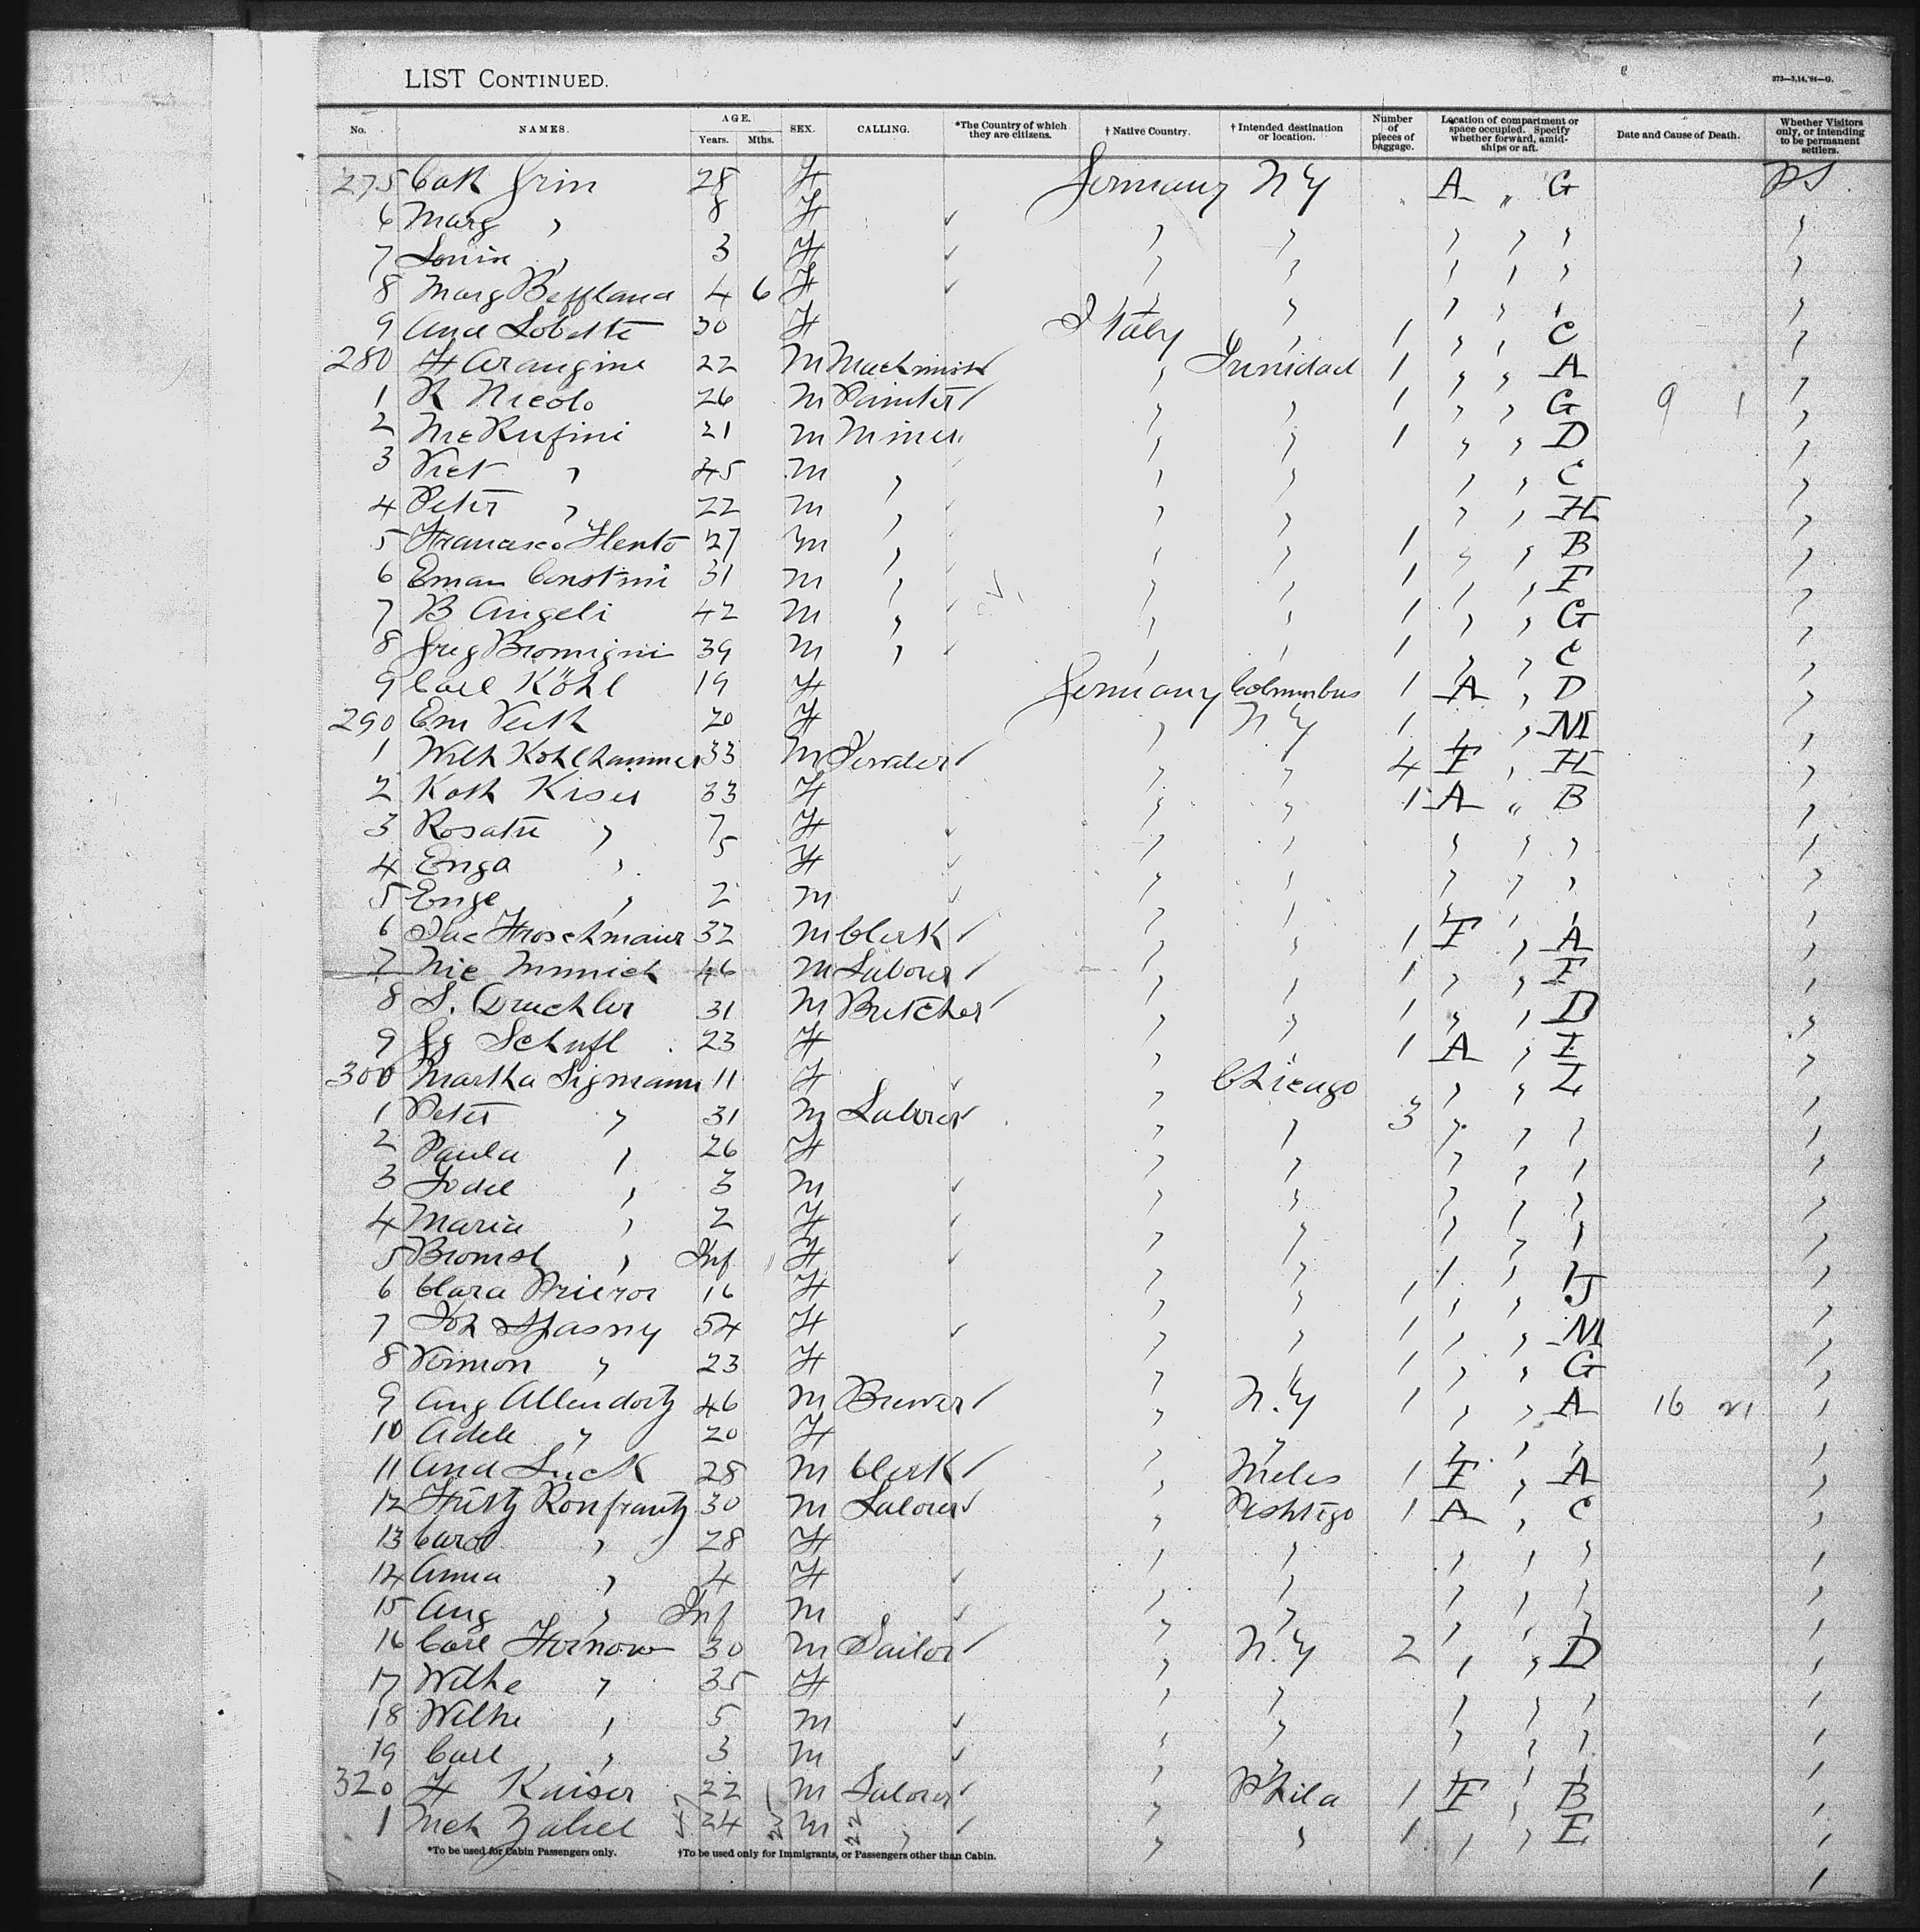 LIST CONTINUED.
373—3,14,'91—G.
No. NAMES. AGE. Years. Mths. SEX. CALLING. *The Country of which they are citizens. † Native Country. † Intended destination or location. Number of pieces of baggage. Location of compartment or space occupied. Specify whether forward, amidships or aft. Date and Cause of Death. Whether Visitors only, or intending to be permanent settlers.
275 Cath 28 F Germany N Y A " G PS
6 Marg " 8 F " " " " " "
7 " 3 F " " " " " "
8 Marg 4 6 F " " " " " "
9 30 F Italy " 1 " " C "
280 F Arangine 22 M Machinist " Trinidad 1 " " A "
1 R Nicolo 26 M Painter " " 1 " " G 9 1 "
2 Rufini 21 M Miner " " 1 " " D "
3 Vict " 45 M " " " " " C "
4 Peter " 22 M " " " " " H "
5 Francisco 27 M " " " 1 " " B "
6 Eman Constini 31 M " " " 1 " " F "
7 B Angeli 42 M " " " 1 " " G "
8 Greg Bromigni 39 M " " " 1 " " C "
9 Carl Köhl 19 F Germany Columbus 1 A " D "
290 Em Veith 20 F " N Y 1 " " M "
1 Wilh Kohlhammer 33 M " " 4 F " H "
2 Kath Kiser 33 F " " 1 A " B "
3 " 7 F " " " " " "
4 Enga " 5 F " " " " " "
5 Enge " 2 M " " " " " "
6 Jac Froschmaier 32 M Clerk " " 1 F " A "
7 Nic Minnich 46 M Laborer " " 1 " " F "
8 S. 31 M Butcher " " 1 " " D "
9 23 F " " 1 A " E "
300 Martha Sigmann 11 F " Chicago " " L "
1 Peter " 31 M Laborer " " 3 " " " "
2 Paula " 26 F " " " " " "
3 " 3 M " " " " " "
4 Maria " 2 F " " " " " "
5 " Inf F " " " " " "
6 Clara 16 F " " 1 " " J "
7 54 F " " 1 " " M "
8 " 23 F " " 1 " " G "
9 Aug Allendorf 46 M Brewer " N.Y 1 " " A 16 21 "
10 Adele " 20 F " " " " " "
11 And Luck 28 M Clerk " 1 F " A "
12 30 M Laborer " Peshtigo 1 A " C "
13 Carol " 28 F " " " " " "
14 Anna " 4 F " " " " " "
15 Aug " Inf M " " " " " "
16 Carl Fornow 30 M Sailor " N.Y 2 " " D "
17 Wilhe " 35 F " " " " " "
18 Wilhe " 5 M " " " " " "
19 Carl " 3 M " " " " " "
320 F Kaiser 22 M Laborer " Phila 1 F " B "
1 Mch Zabel 24 M " " " 1 " " E "
*To be used for Cabin Passengers only. †To be used only for Immigrants, or Passengers other than Cabin.